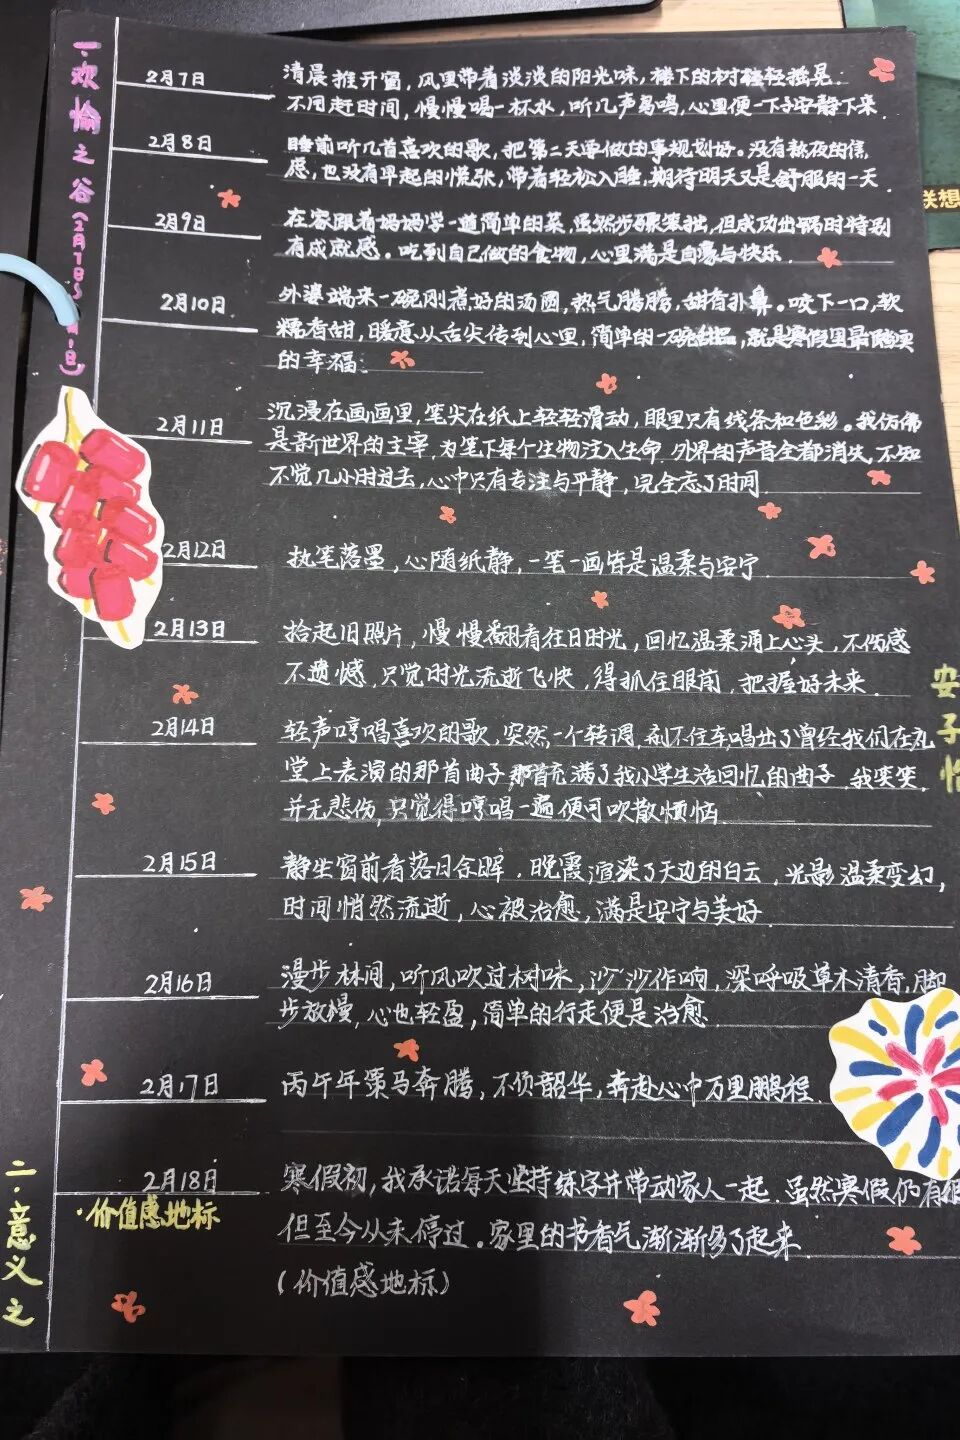 一·欢愉之谷(2月7日
2月7日
清晨推开窗,风里带着淡淡的阳光味,楼下的树轻轻摇晃.
不用赶时间,慢慢喝一杯水,听几声鸟鸣,心里便一下子安静下来
2月8日
睡前听几首喜欢的歌,把第二天要做的事规划好。没有熬夜的焦
虑,也没有早起的慌张,带着轻松入睡,期待明天又是舒服的一天.
2月9日
在家跟着妈妈学一道简单的菜,虽然步骤笨拙,但成功出锅时特别
有成就感。吃到自己做的食物,心里满是自豪与快乐.
2月10日
外婆端来一碗刚煮好的汤圆,热气腾腾,甜香扑鼻。咬下一口,软
糯香甜,暖意从舌尖传到心里,简单的一碗甜品,就是寒假里最踏实
的幸福.
2月11日
沉浸在画画里,笔尖在纸上轻轻滑动,眼里只有线条和色彩。我仿佛
是新世界的主宰,为笔下每个生物注入生命,外界的声音全都消失,不知
不觉几小时过去,心中只有专注与平静,完全忘了时间.
2月12日
执笔落墨,心随纸静,一笔一画皆是温柔与安宁.
2月13日
拾起旧照片,慢慢翻看往日时光,回忆温柔涌上心头,不伤感
不遗憾,只觉时光流逝飞快,得抓住眼前,把握好未来.
2月14日
轻声哼唱喜欢的歌,突然一个转调,刹不住车,唱出了曾经我们在礼
堂上表演的那首曲子 那首充满了我小学生活回忆的曲子.我笑笑.
并无悲伤,只觉得哼唱一遍便可吹散烦恼.
2月15日
静坐窗前看落日余晖.晚霞渲染了天边的白云,光影温柔变幻,
时间悄然流逝,心被治愈,满是安宁与美好
2月16日
漫步林间,听风吹过树味,沙沙作响,深呼吸草木清香,脚
步放慢,心也轻盈,简单的行走便是治愈.
2月17日
丙午年策马奔腾,不负韶华,奔赴心中万里鹏程.
2月18日
·价值感地标
寒假初,我承诺每天坚持练字并带动家人一起.虽然寒假仍有很
但至今从未停过。家里的书香气渐渐多了起来.
(价值感地标)
二·意义之
安子
联想